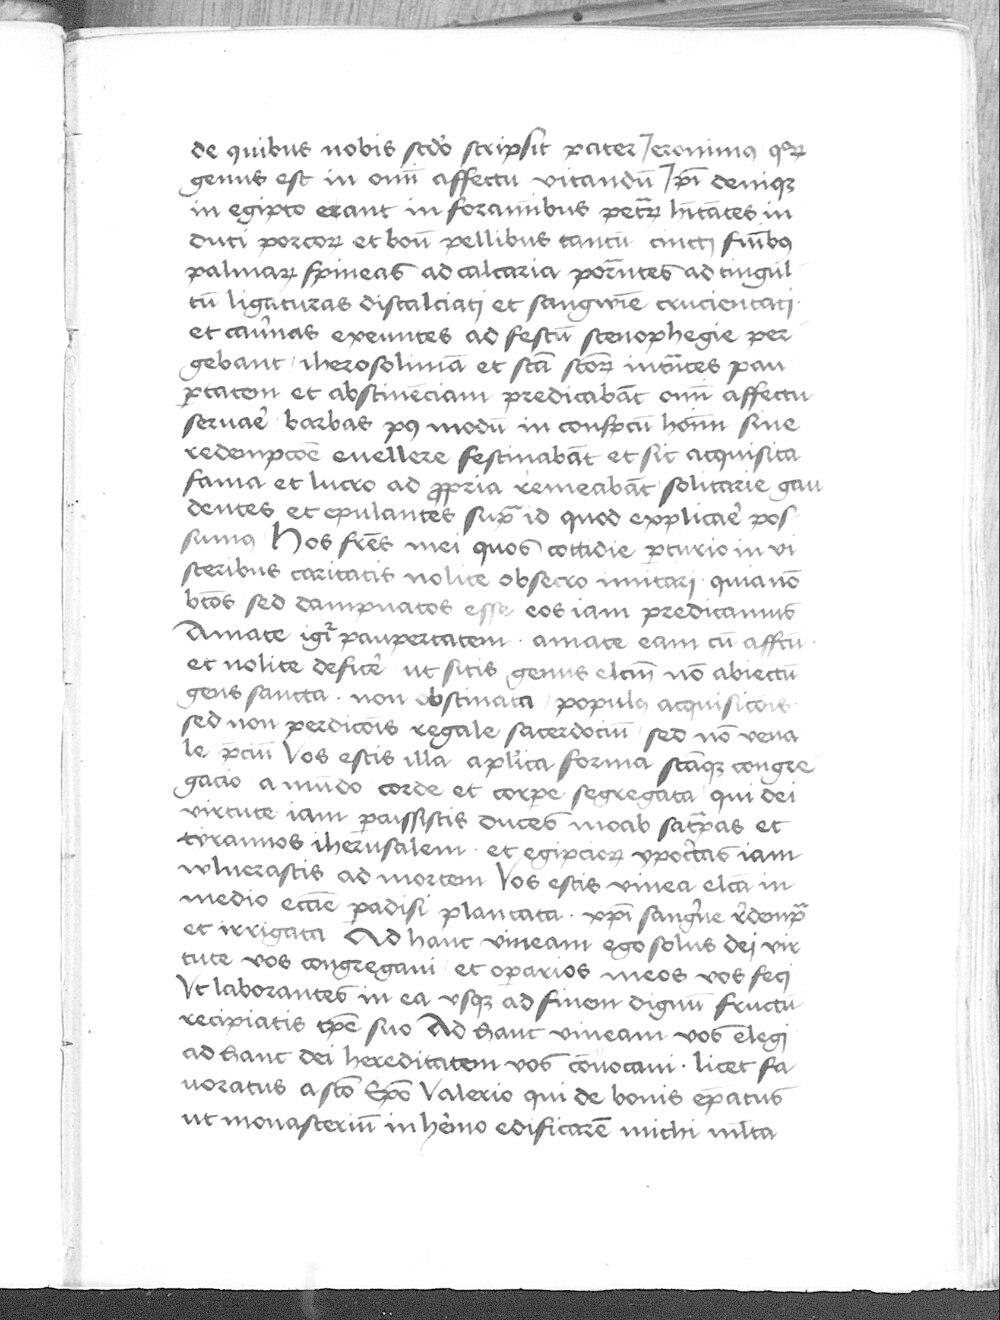 de quibus nobis scdo scripsit pater Jeronimꝰ qꝝ
genus est in omī affectu vitandū Jpī deniqꝫ
in egipto erant in foraminibus petrꝝ hītātes in
duti porcoꝝ et boū pellibus tantū cincti funibꝰ
palmaꝝ spineas ad calcaria portātes ad cingul
tū ligaturas discalciati et sangwīe cruentati
et cav̓nas exeuntes ad festū scenophegie per
gebant iherosolimā et scā scoꝝ intrātes pau
ꝑtatem et abstinēciam predicabāt omī affectu
seruare̓ barbas pꝰ modū in conspcū hoīm sine
redempcōe euellere festinabāt et sic acquisita
fama et lucro ad ꝓpria remeabāt solitarie gau
dentes et epulantes supra id quod explicare̓ pos
sumꝰ Hos fres̄ mei quos cottidie ꝑturio in vi
sceribus caritatis nolite obsecro imitari quia nō
btōs sed dampnatos esse eos iam predicamus
Amate igit̄ paupertatem · amate eam cū affcū ·
et nolite defice̓ ut sitis genus elcm̄ nō abiectū
gens sancta · non obstinata populꝰ acquisicōis
sed non perdicōis regale sacerdociū sed nō vena
le p̄ciū Vos estis illa aplica forma scāqꝫ congre
gacio a mūdo corde et corpe segregata qui dei
virtute iam ꝑcussistis duces moab satpas et
tyrannos iherusalem · et egipcioꝝ ypoc̓tas iam
wlnerastis ad mortem Vos estis vinea elcā in
medio ecc̄ie padisi plantata · xpī sangue̓ rdempta
et irrigata Ad hanc vineam ego solus dei vir
tute vos congregaui et oꝑarios meos vos feci
Vt laborantes in ea vsqꝫ ad finem dignū fructū
recipiatis tpe̅ suo Ad hanc vineam vos elegi
ad hanc dei hereditatem vos cōuocaui · licet fa
uoratus a scō Epō Valerio qui de bonis epatus
ut monasteriū in he̓mo edificarē michi mlta